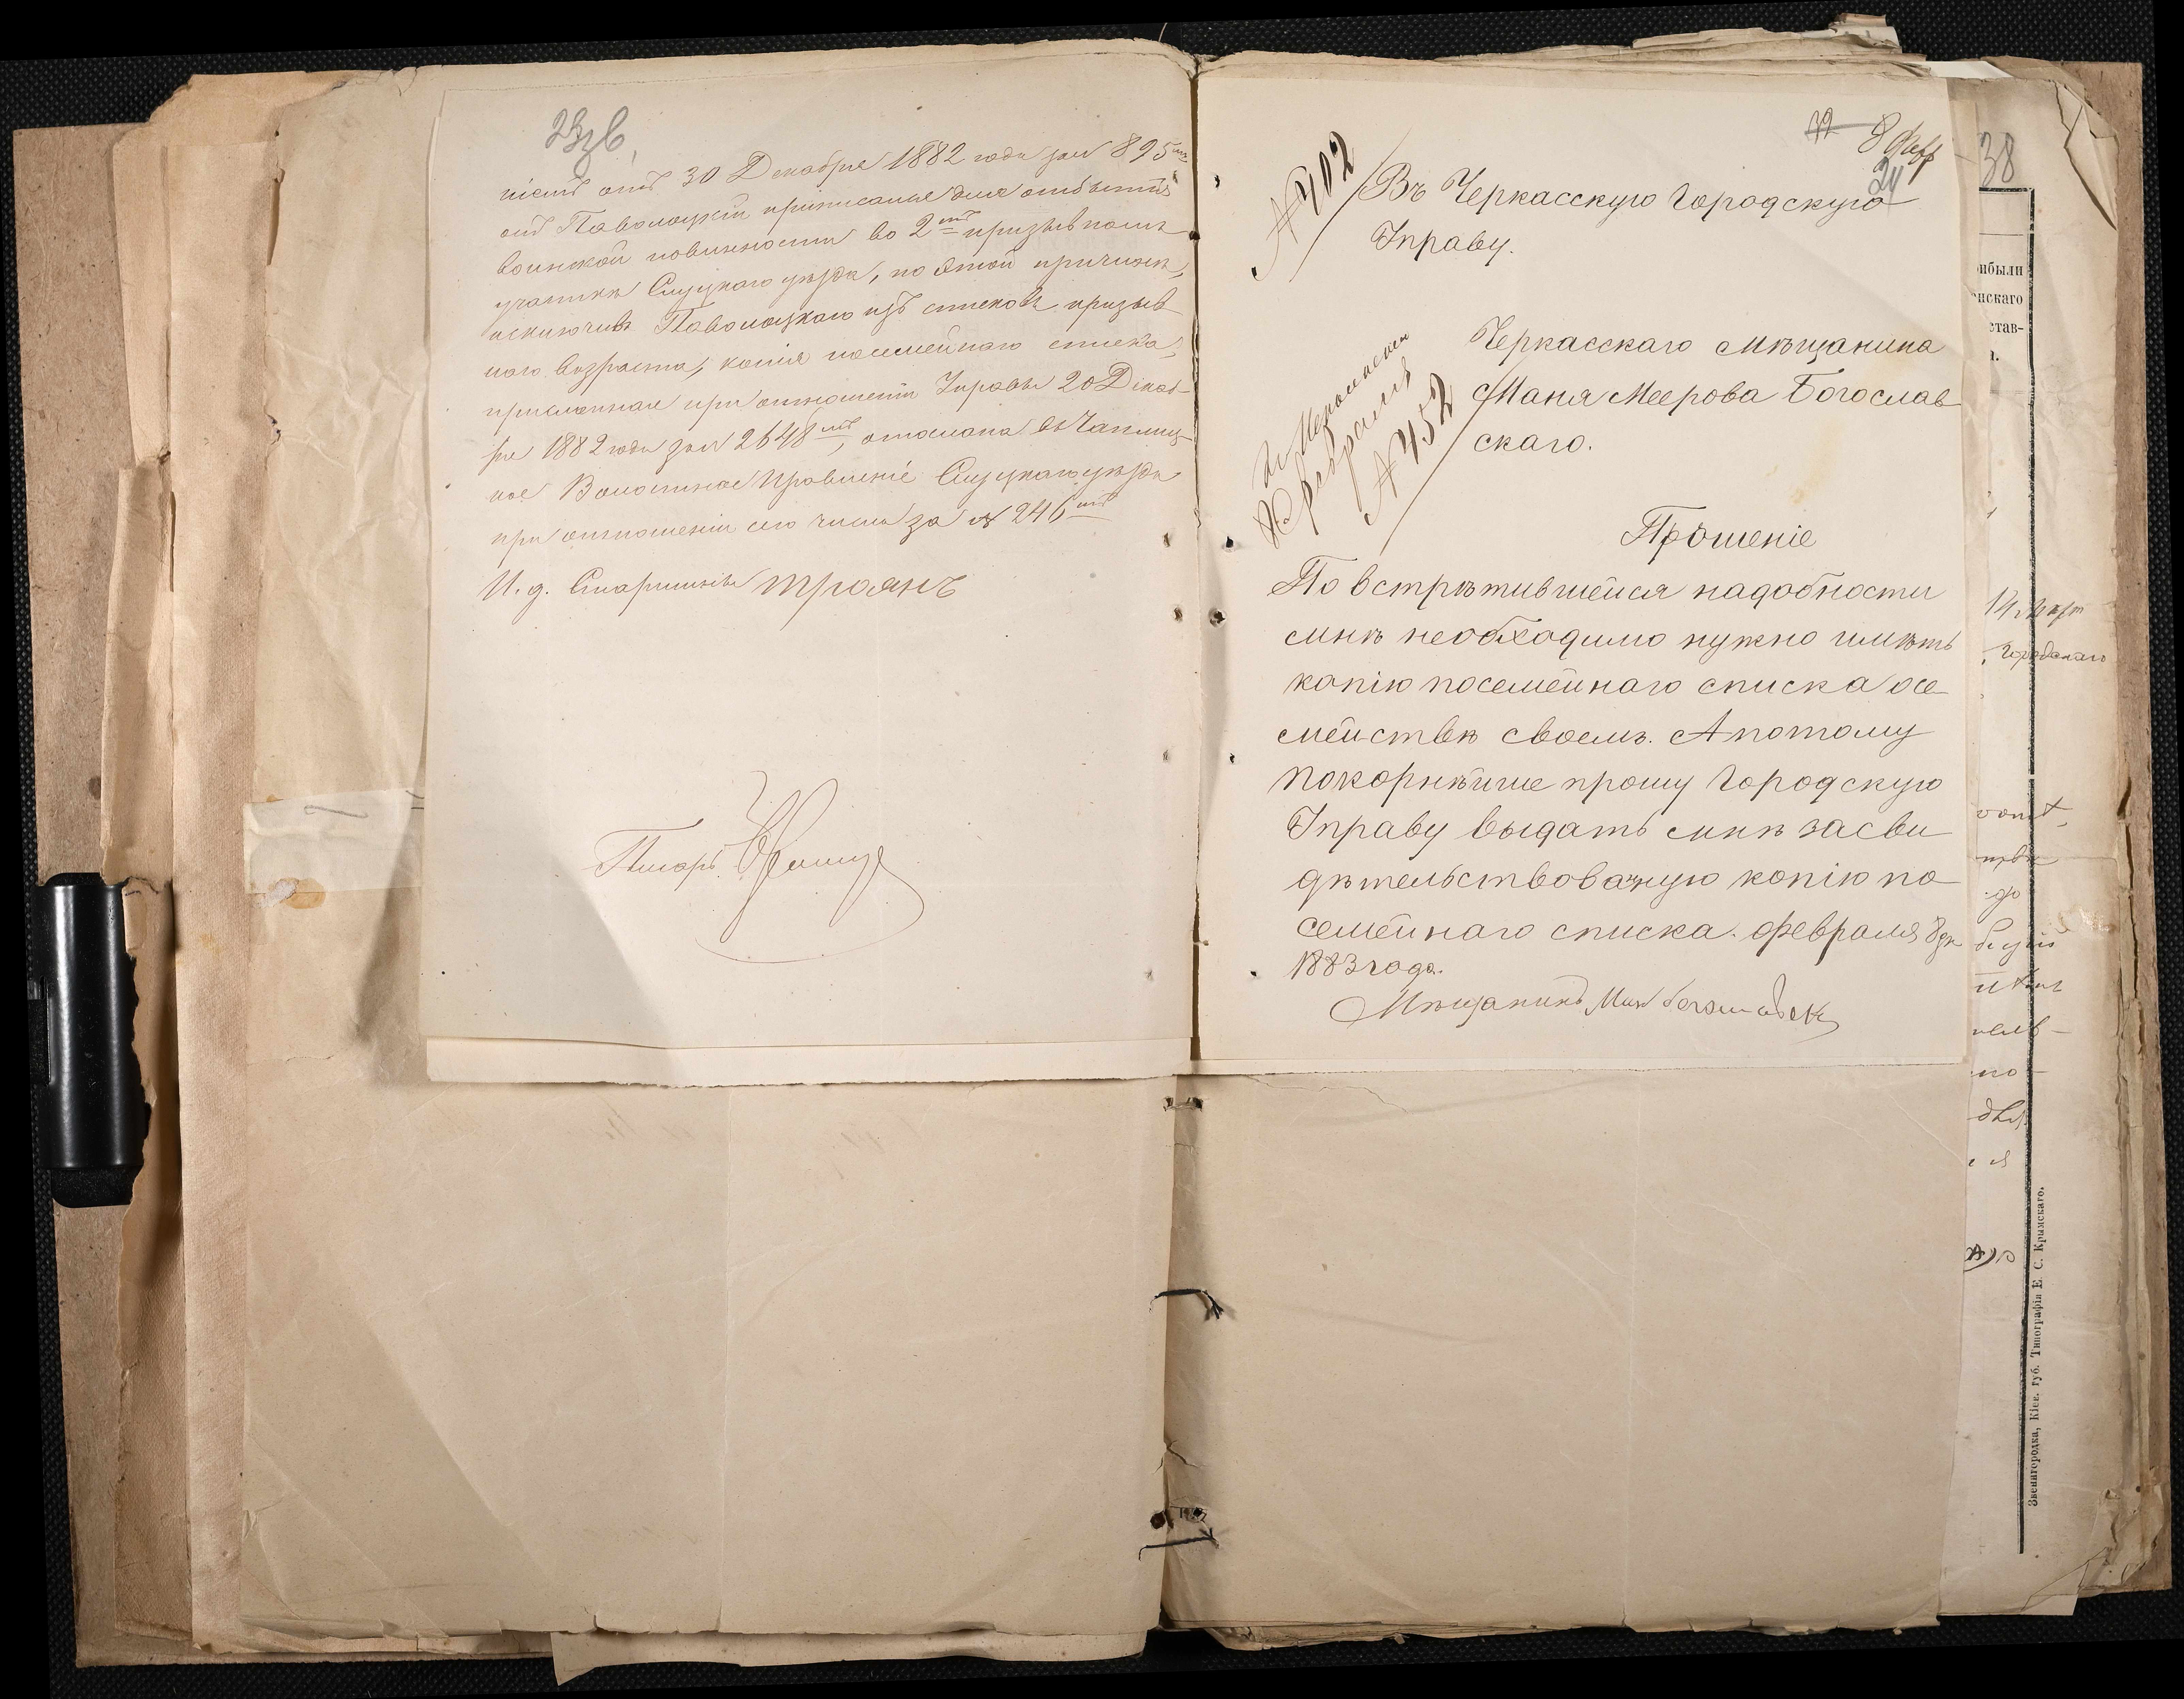 23 зв,
ніемъ отъ 30 Декабря 1882 года за № 895мъ
онъ Паволоцкій приписанъ для отбытія
воинской повинности во 2мъ призывномъ
участкѣ Слуцкаго уѣзда, по этой причинѣ,
исключивъ Паволоцкаго изъ списковъ призыв
наго возраста, копія посемейнаго списка,
присланная при отношеніи Управы 20 Декаб-
ря 1882 года за № 2648мъ, отослана въ Чаплиц-
кое Волостное Правленіе Слуцкаго уѣзда
при отношеніи сего числа за № 246мъ
И. д. Старшины Троянъ
Писарь
32 8 февр
24
№ 402
Въ Черкасскую Городскую
Управу.
Черкасскаго мѣщанина
Маня Меерова Богослав
скаго.
февраля
№ 452
Прошеніе
По встрѣтившейся надобности
мнѣ необходимо нужно имѣть
копію посемейнаго списка о се
мействѣ своемъ. А потому
покорнѣйше прошу Городскую
Управу выдать мнѣ засви
дѣтельствованную копію по
семейнаго списка. февраля 8 дн
1883 года.
Мѣщанинъ Маня Богославск
38
ибыли
нскаго
став-
Звенигородка, Кіев. губ. Типографія Е. С. Крымскаго.